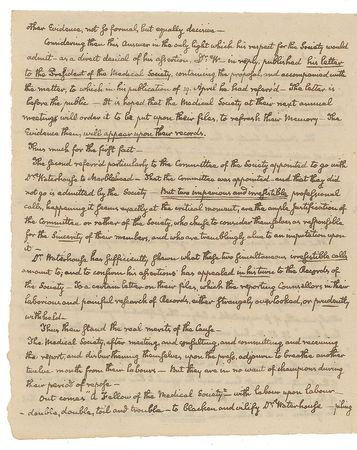 other Evidence, not so formal, but equally decisive —
Considering then this Answer in the only light which his respect for the Society would
admit — as a direct denial of his assertion. Dr. W— in reply, published his letter
to the President of the Medical Society, containing the proposal, and accompanied with
the matter, to which in his publication of 19. April he had referd — The letter is
before the public — It is hoped that the Medical Society at their next annual
meeting will order it to be put upon their files, to refresh their Memory — The
Evidence then, will appear upon their records.
Thus much for the first fact —
The second referd particularly to the Committee of the Society appointed to go with
Dr. Waterhouse to Marblehead — That the Committee was appointed and that they did
not go is admitted by the Society — But two imperious and irresistible professional
calls, happening it seems exactly at the critical moment, are the ample justification of
the Committee or rather of the Society, who chuse to consider themselves as responsible
for the Sincerity of their members, and who are tremblingly alive to an imputation upon
it —
Dr. Waterhouse has sufficiently shewn what these two simultaneous irresistible calls
amount to; and to confirm his assertions has appealed in his turn to the Records of
the Society — To a certain letter on their files, which the reporting Counsellors in their
laborious and painful research of Records, either strangely overlooked, or prudently
withheld —
Thus then stand the real merits of the Cause —
The Medical Society, after meeting, and consulting, and committing, and receiving
the report, and disburthening themselves, upon the press, adjourn to breathe another
twelve month from their labours — But they are in no want of champions during
their period of repose —
Out comes "a Fellow of the Medical Society" — with labour upon labour —
double, double, toil and trouble — to blacken and vilify Dr. Waterhouse — piling